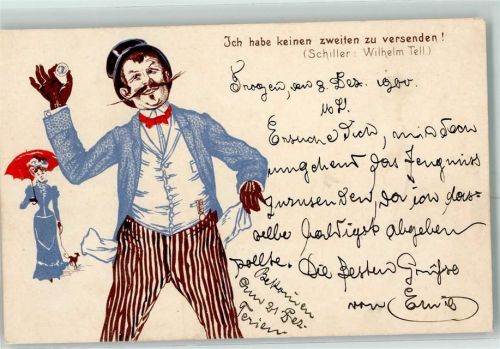 Ich habe keinen zweiten zu versenden!
(Schiller: Wilhelm Tell.)
Trogen, den 8. Dez. 1900.
Ersuche dich, mir dann
umgehend das Zeugniss
zuzusenden, da ich das-
selbe baldigst abgeben
sollte. Die besten Grüsse
von Emil
Bekomen
am 21 Dez.
Ferien